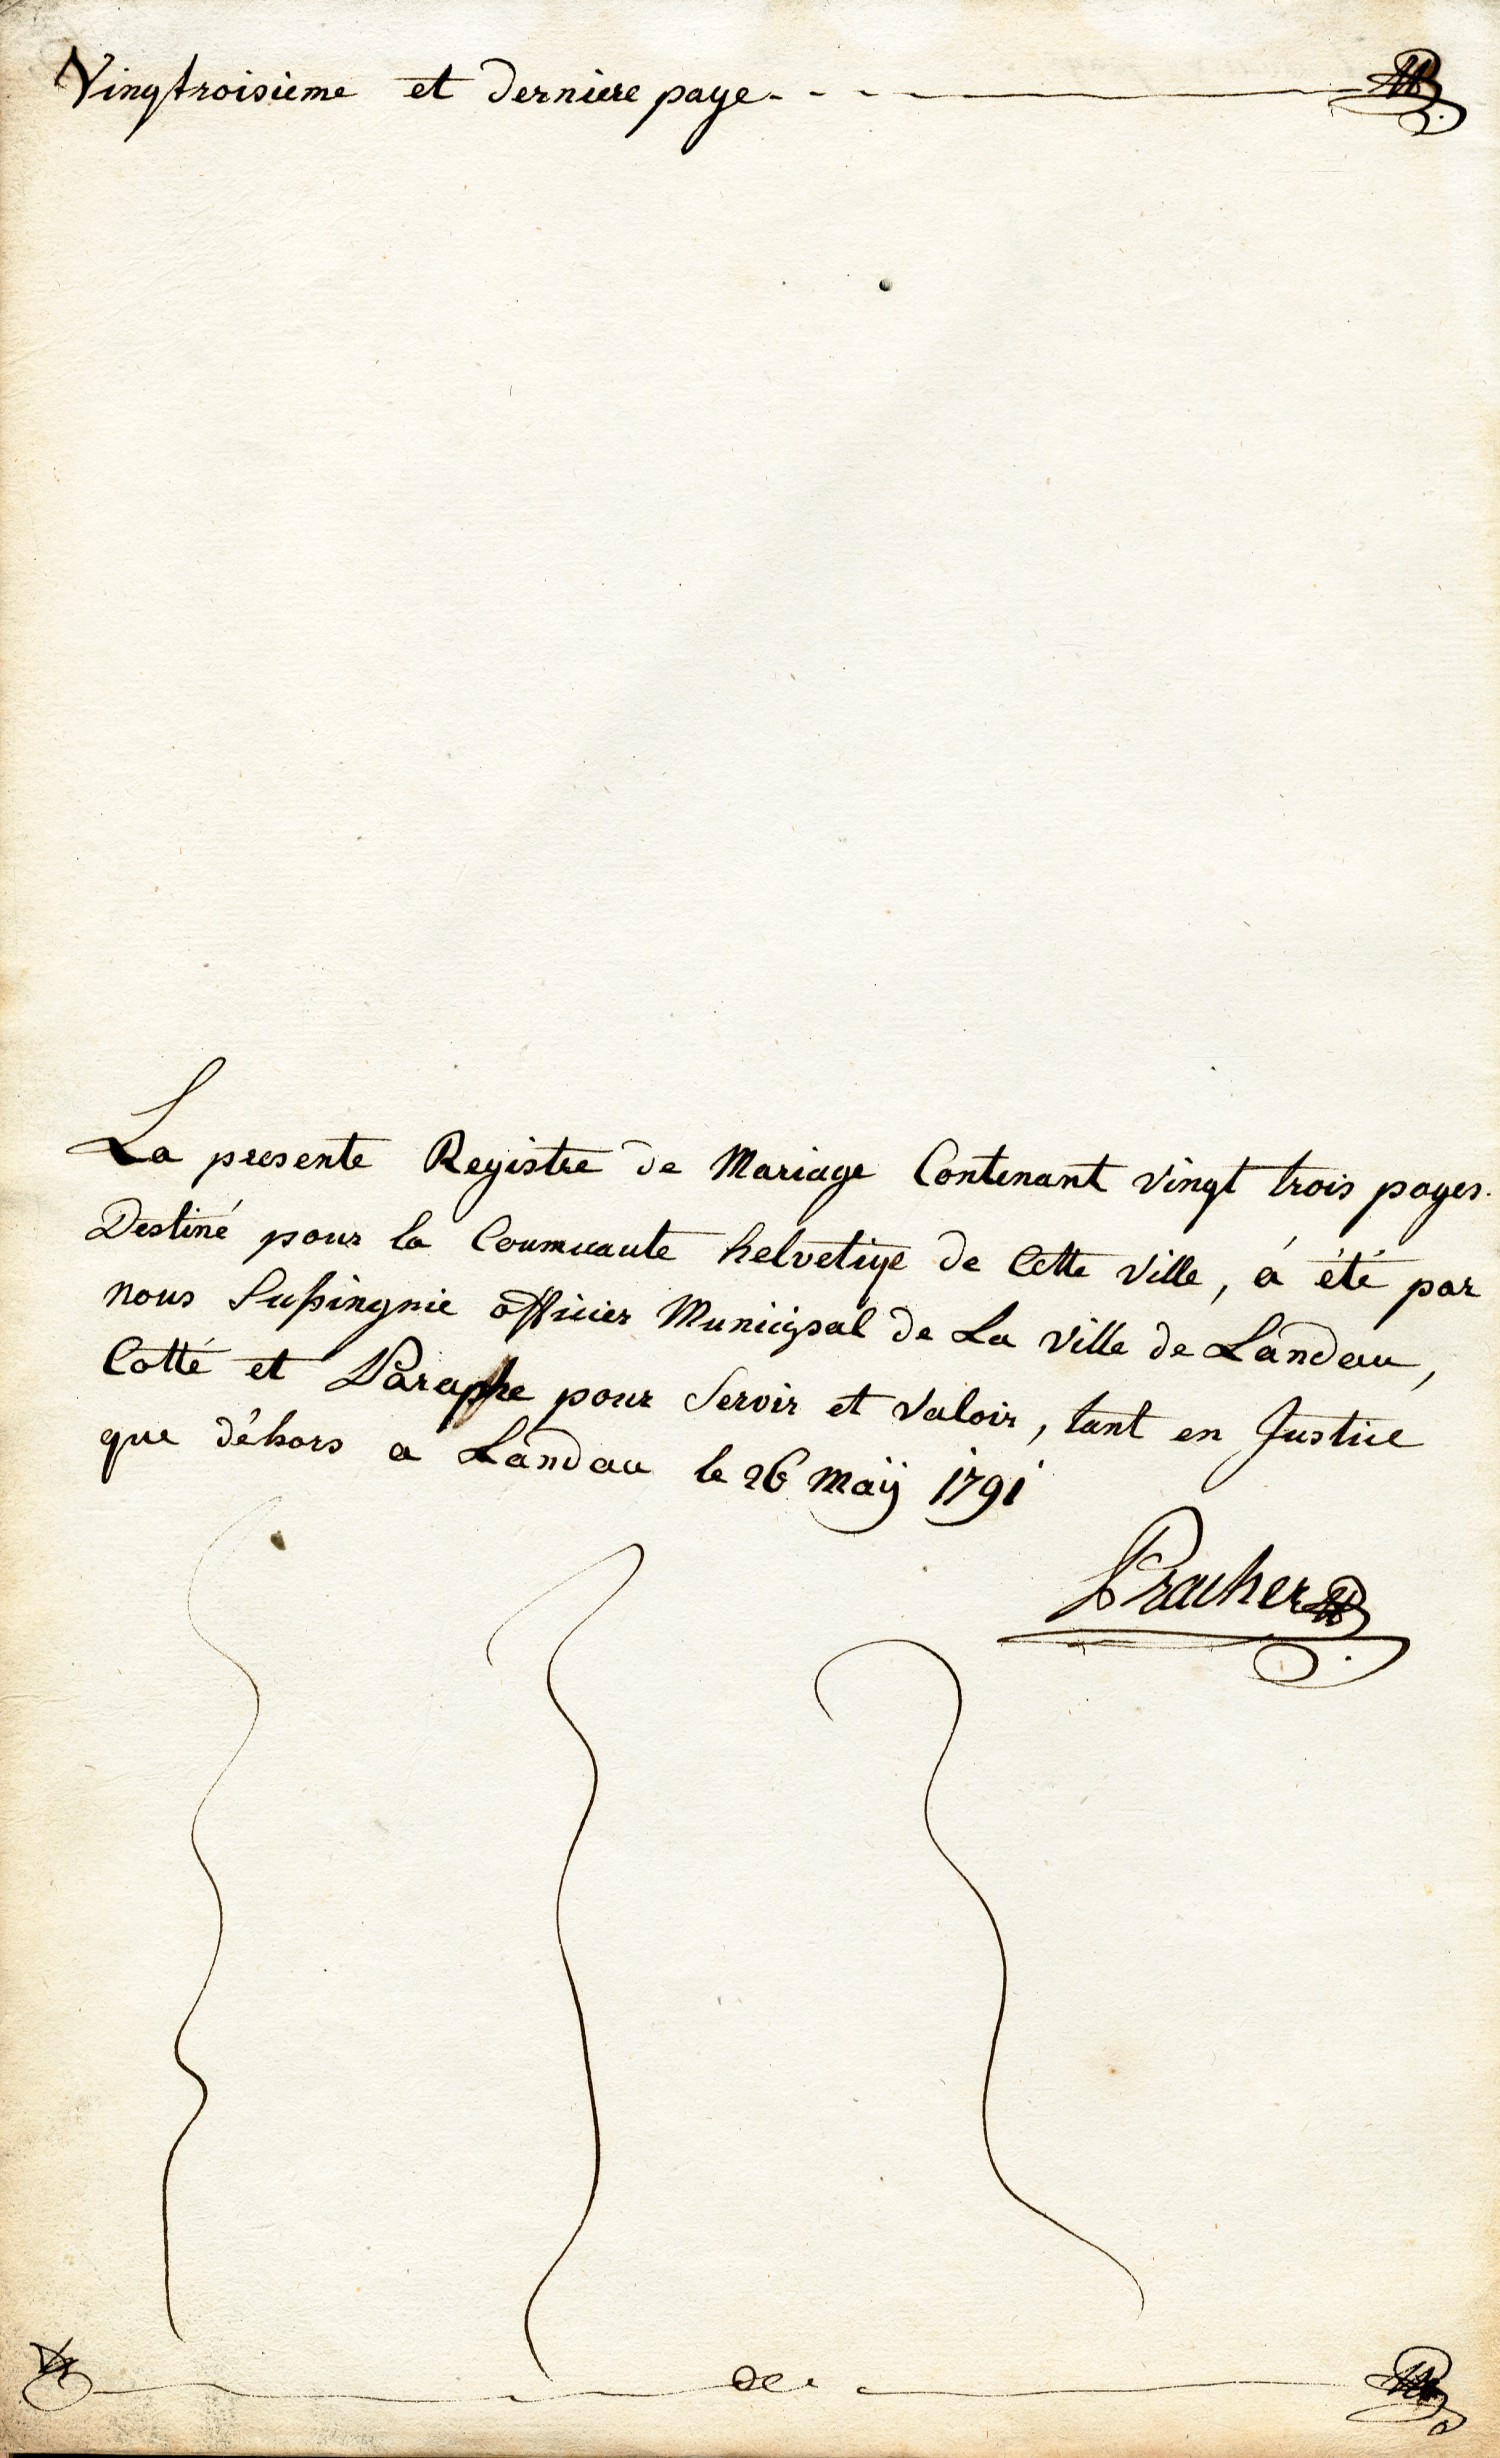 Vingtroisieme et derniere page
La presente Registre de Mariage Contenant vingt trois pages.
Destiné pour la Coumuaute helvetiqe de Cette ville, á été par
nous Sußingnie officier Municipal de La ville de Landau,
Cotté et Paraphe pour Servir et valoir, tant en Justice
que déhors a Landau le 26 Maÿ 1791
Pracher